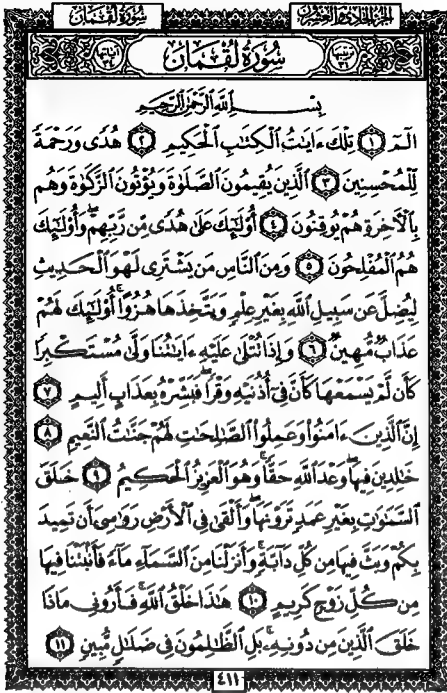 سُورَةُ لُقْمَان
الجزء الحادي والعشرون
سُورَةُ لُقْمَان
بِسْمِ اللَّهِ الرَّحْمَٰنِ الرَّحِيمِ
الٓمٓ ١ تِلْكَ ءَايَٰتُ ٱلْكِتَٰبِ ٱلْحَكِيمِ ٢ هُدًى وَرَحْمَةً
لِّلْمُحْسِنِينَ ٣ ٱلَّذِينَ يُقِيمُونَ ٱلصَّلَوٰةَ وَيُؤْتُونَ ٱلزَّكَوٰةَ وَهُم
بِٱلْأَخِرَةِ هُمْ يُوقِنُونَ ٤ أُو۟لَٰٓئِكَ عَلَىٰ هُدًى مِّن رَّبِّهِمْ ۖ وَأُو۟لَٰٓئِكَ
هُمُ ٱلْمُفْلِحُونَ ٥ وَمِنَ ٱلنَّاسِ مَن يَشْتَرِى لَهْوَ ٱلْحَدِيثِ
لِيُضِلَّ عَن سَبِيلِ ٱللَّهِ بِغَيْرِ عِلْمٍ وَيَتَّخِذَهَا هُزُوًا ۚ أُو۟لَٰٓئِكَ لَهُمْ
عَذَابٌ مُّهِينٌ ٦ وَإِذَا تُتْلَىٰ عَلَيْهِ ءَايَٰتُنَا وَلَّىٰ مُسْتَكْبِرًا
كَأَن لَّمْ يَسْمَعْهَا كَأَنَّ فِىٓ أُذُنَيْهِ وَقْرًا ۖ فَبَشِّرْهُ بِعَذَابٍ أَلِيمٍ ٧
إِنَّ ٱلَّذِينَ ءَامَنُوا۟ وَعَمِلُوا۟ ٱلصَّٰلِحَٰتِ لَهُمْ جَنَّٰتُ ٱلنَّعِيمِ ٨
خَٰلِدِينَ فِيهَا ۖ وَعْدَ ٱللَّهِ حَقًّا ۚ وَهُوَ ٱلْعَزِيزُ ٱلْحَكِيمُ ٩ خَلَقَ
ٱلسَّمَٰوَٰتِ بِغَيْرِ عَمَدٍ تَرَوْنَهَا ۖ وَأَلْقَىٰ فِى ٱلْأَرْضِ رَوَٰسِىَ أَن تَمِيدَ
بِكُمْ وَبَثَّ فِيهَا مِن كُلِّ دَآبَّةٍ ۚ وَأَنزَلْنَا مِنَ ٱلسَّمَآءِ مَآءً فَأَنۢبَتْنَا فِيهَا
مِن كُلِّ زَوْجٍ كَرِيمٍ ١٠ هَٰذَا خَلْقُ ٱللَّهِ فَأَرُونِى مَاذَا
خَلَقَ ٱلَّذِينَ مِن دُونِهِۦ ۚ بَلِ ٱلظَّٰلِمُونَ فِى ضَلَٰلٍ مُّبِينٍ ١١
٤١١